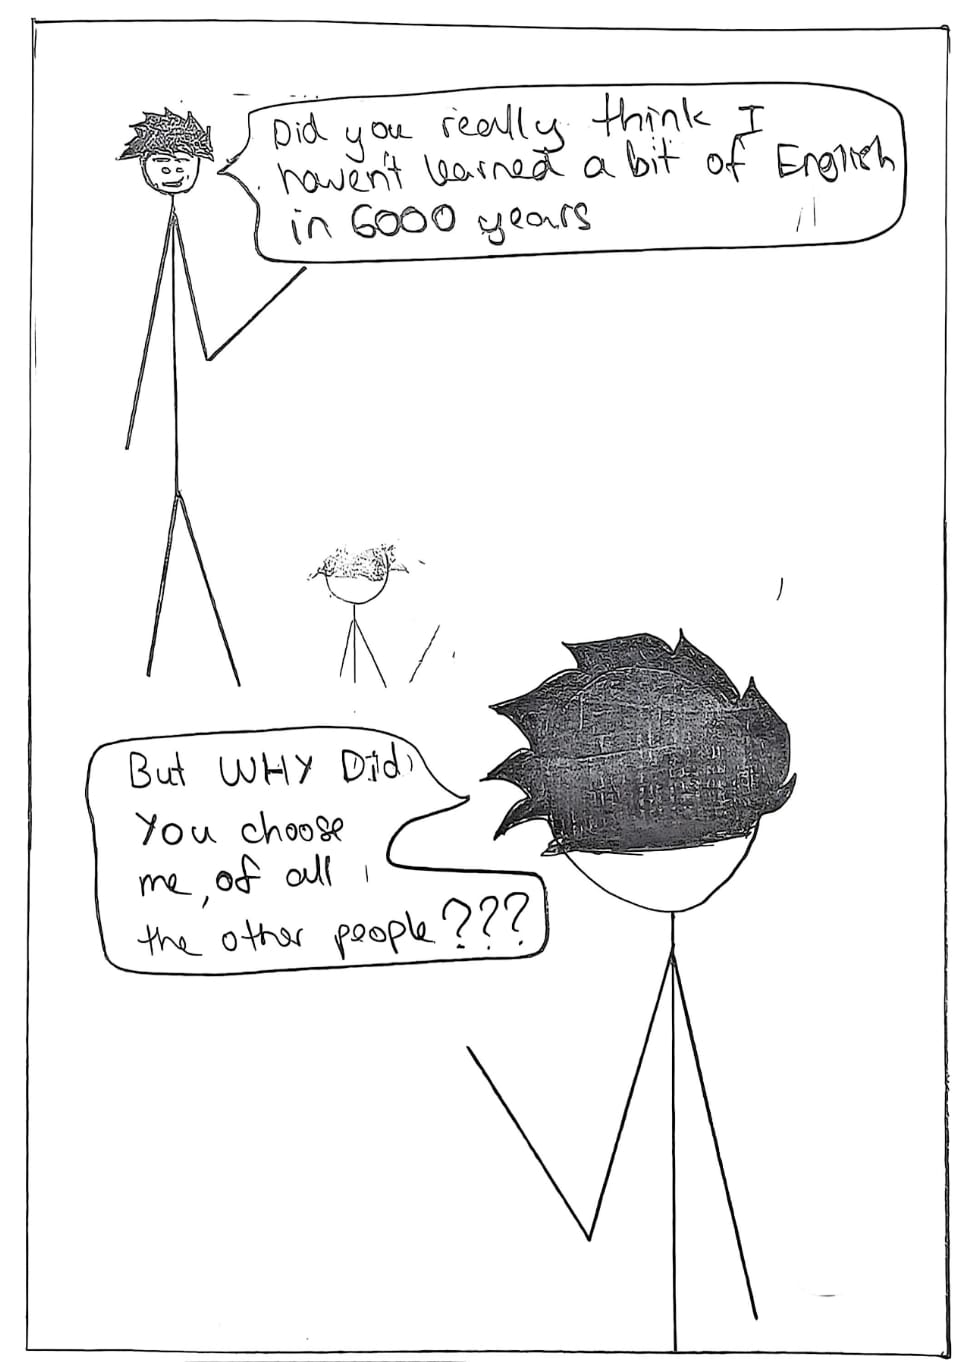 Did you really think I
haven't learned a bit of English
in 6000 years
But WHY Did
You choose
me, of all
the other people???